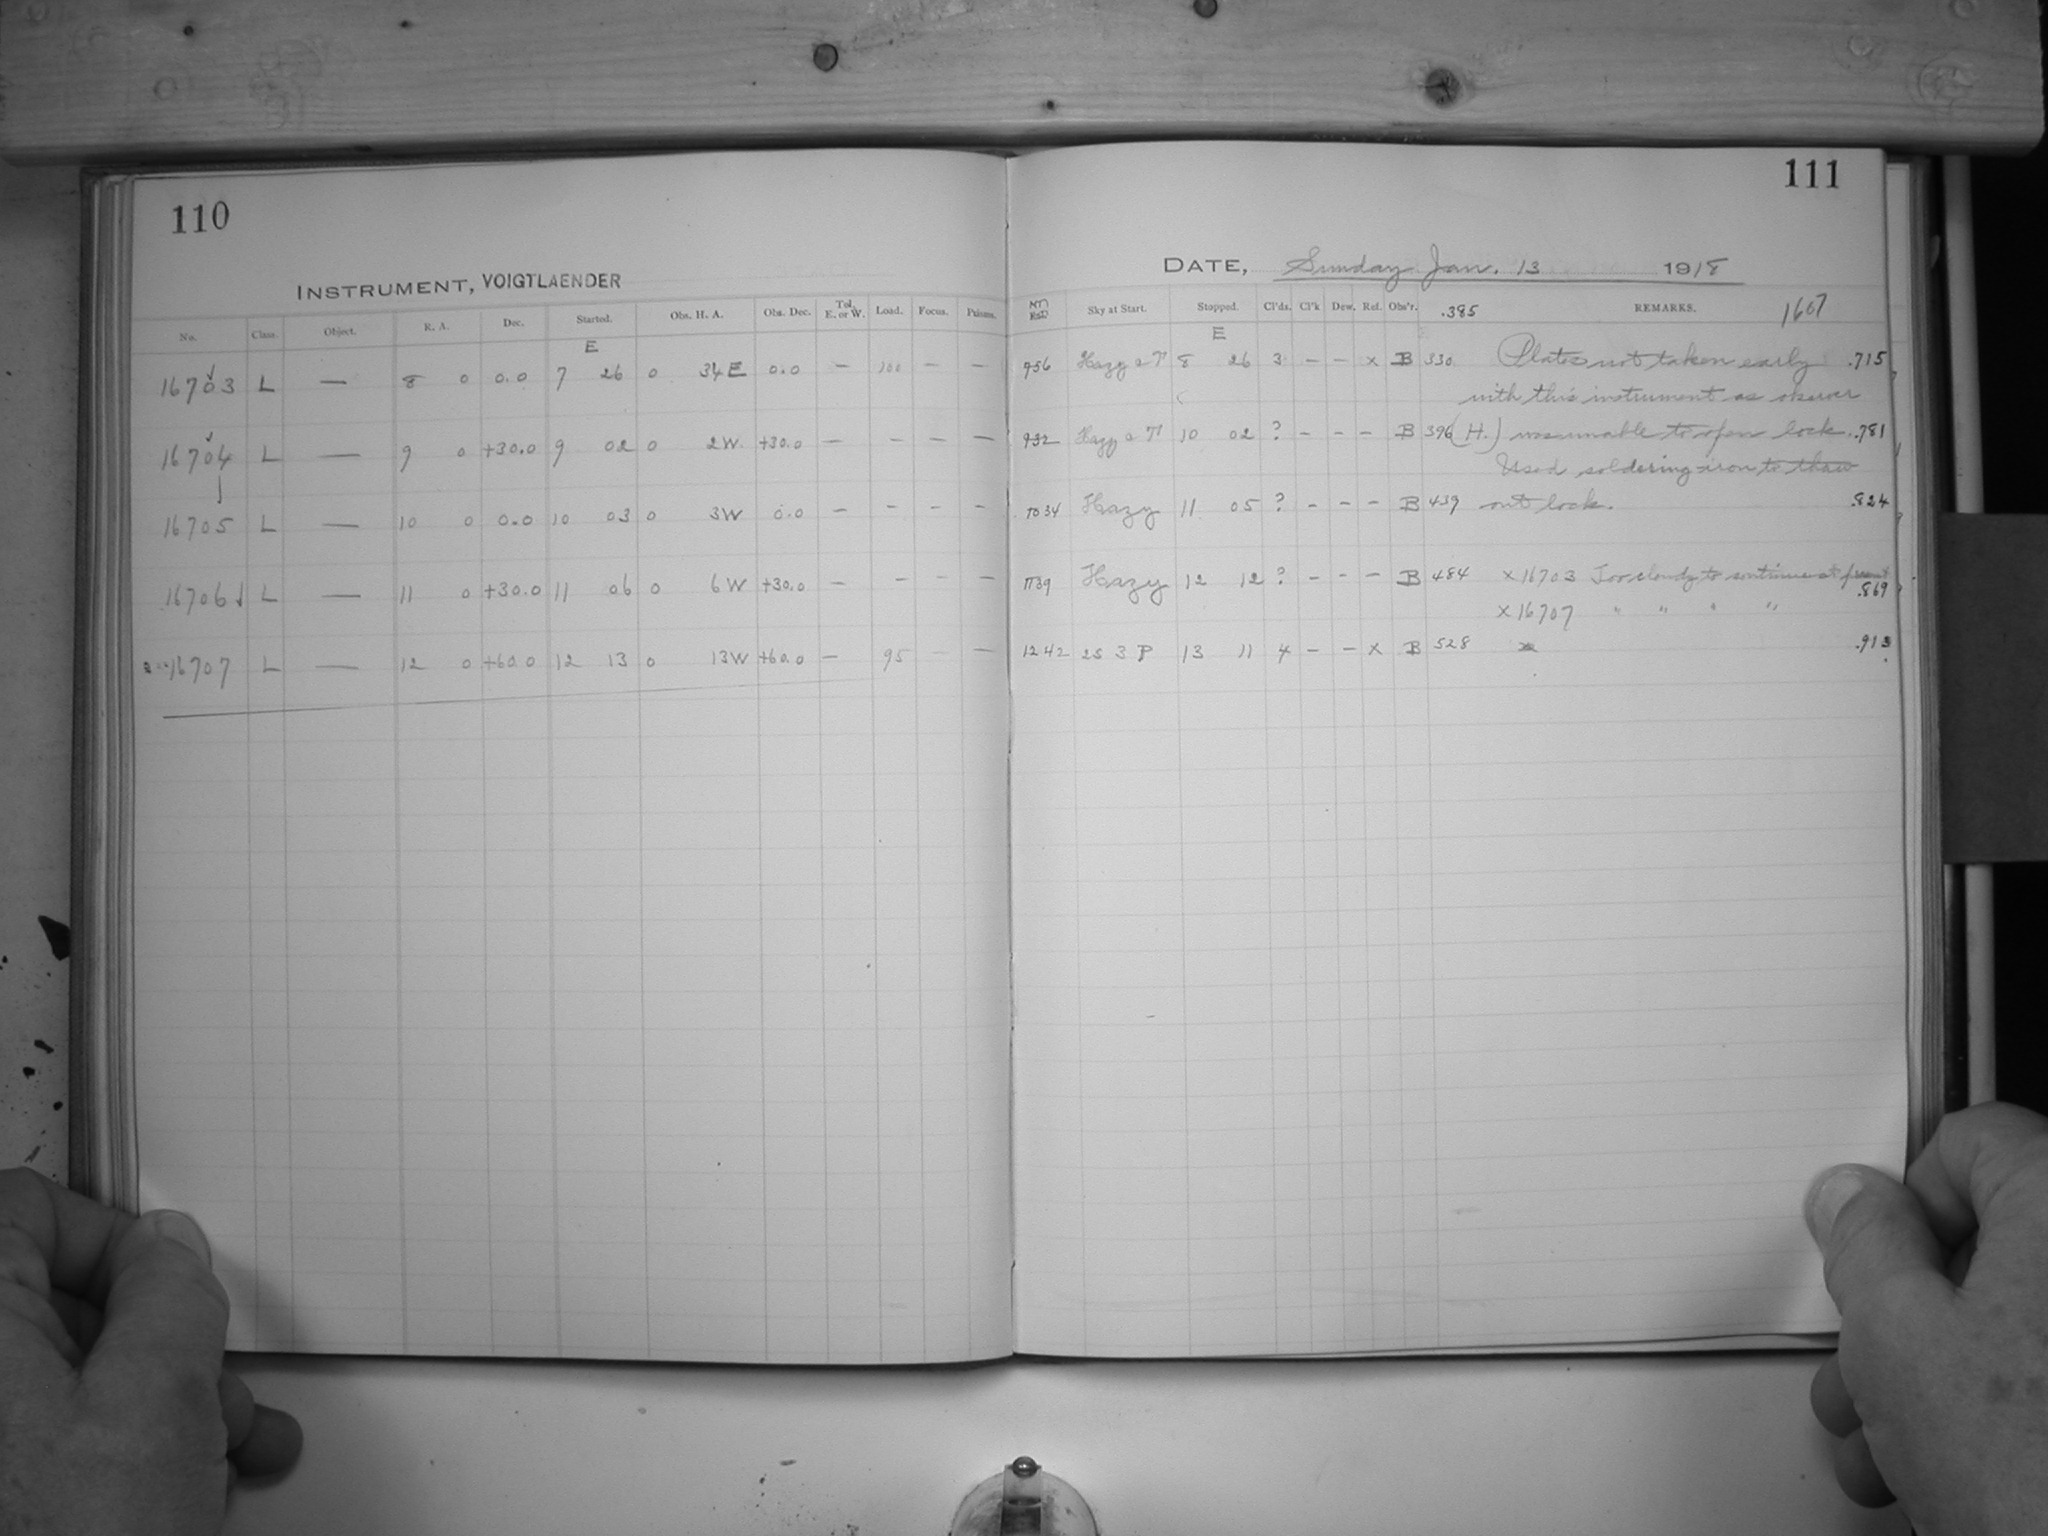 110
INSTRUMENT, VOIGTLAENDER
No. Class. Object. R. A. Dec. Started. Obs. H. A. Obs. Dec. Tel. E. or W. Load. Focus. Prisms.
E
16703 L — 8 0 0.0 7 26 0 34 E 0.0 — 100 — —
16704 L — 9 0 +30.0 9 02 0 2 W. +30.0 — — — —
16705 L — 10 0 0.0 10 03 0 3 W 0.0 — — — —
16706 L — 11 0 +30.0 11 06 0 6 W +30.0 — — — —
16707 L — 12 0 +60.0 12 13 0 13 W +60.0 — 95 — —
111
DATE, Sunday Jan. 13 1918
Sky at Start. Stopped. Cl'ds. Cl'k Dew. Rel. Obs'r. .385 REMARKS. 1607
E
756 Hazy 8 26 3 — — x B 330 Plates not taken early .715
with this instrument as observer
932 Hazy 10 02 ? — — — B 396 (H.) was unable to open lock. .781
Used soldering iron to thaw
1034 Hazy 11 05 ? — — — B 439 out lock. .824
1139 Hazy 12 12 ? — — — B 484 x 16703 Too cloudy to continue at present
.869
x 16707 " " " "
1242 2S 3 P 13 11 4 — — x B 528 x .913